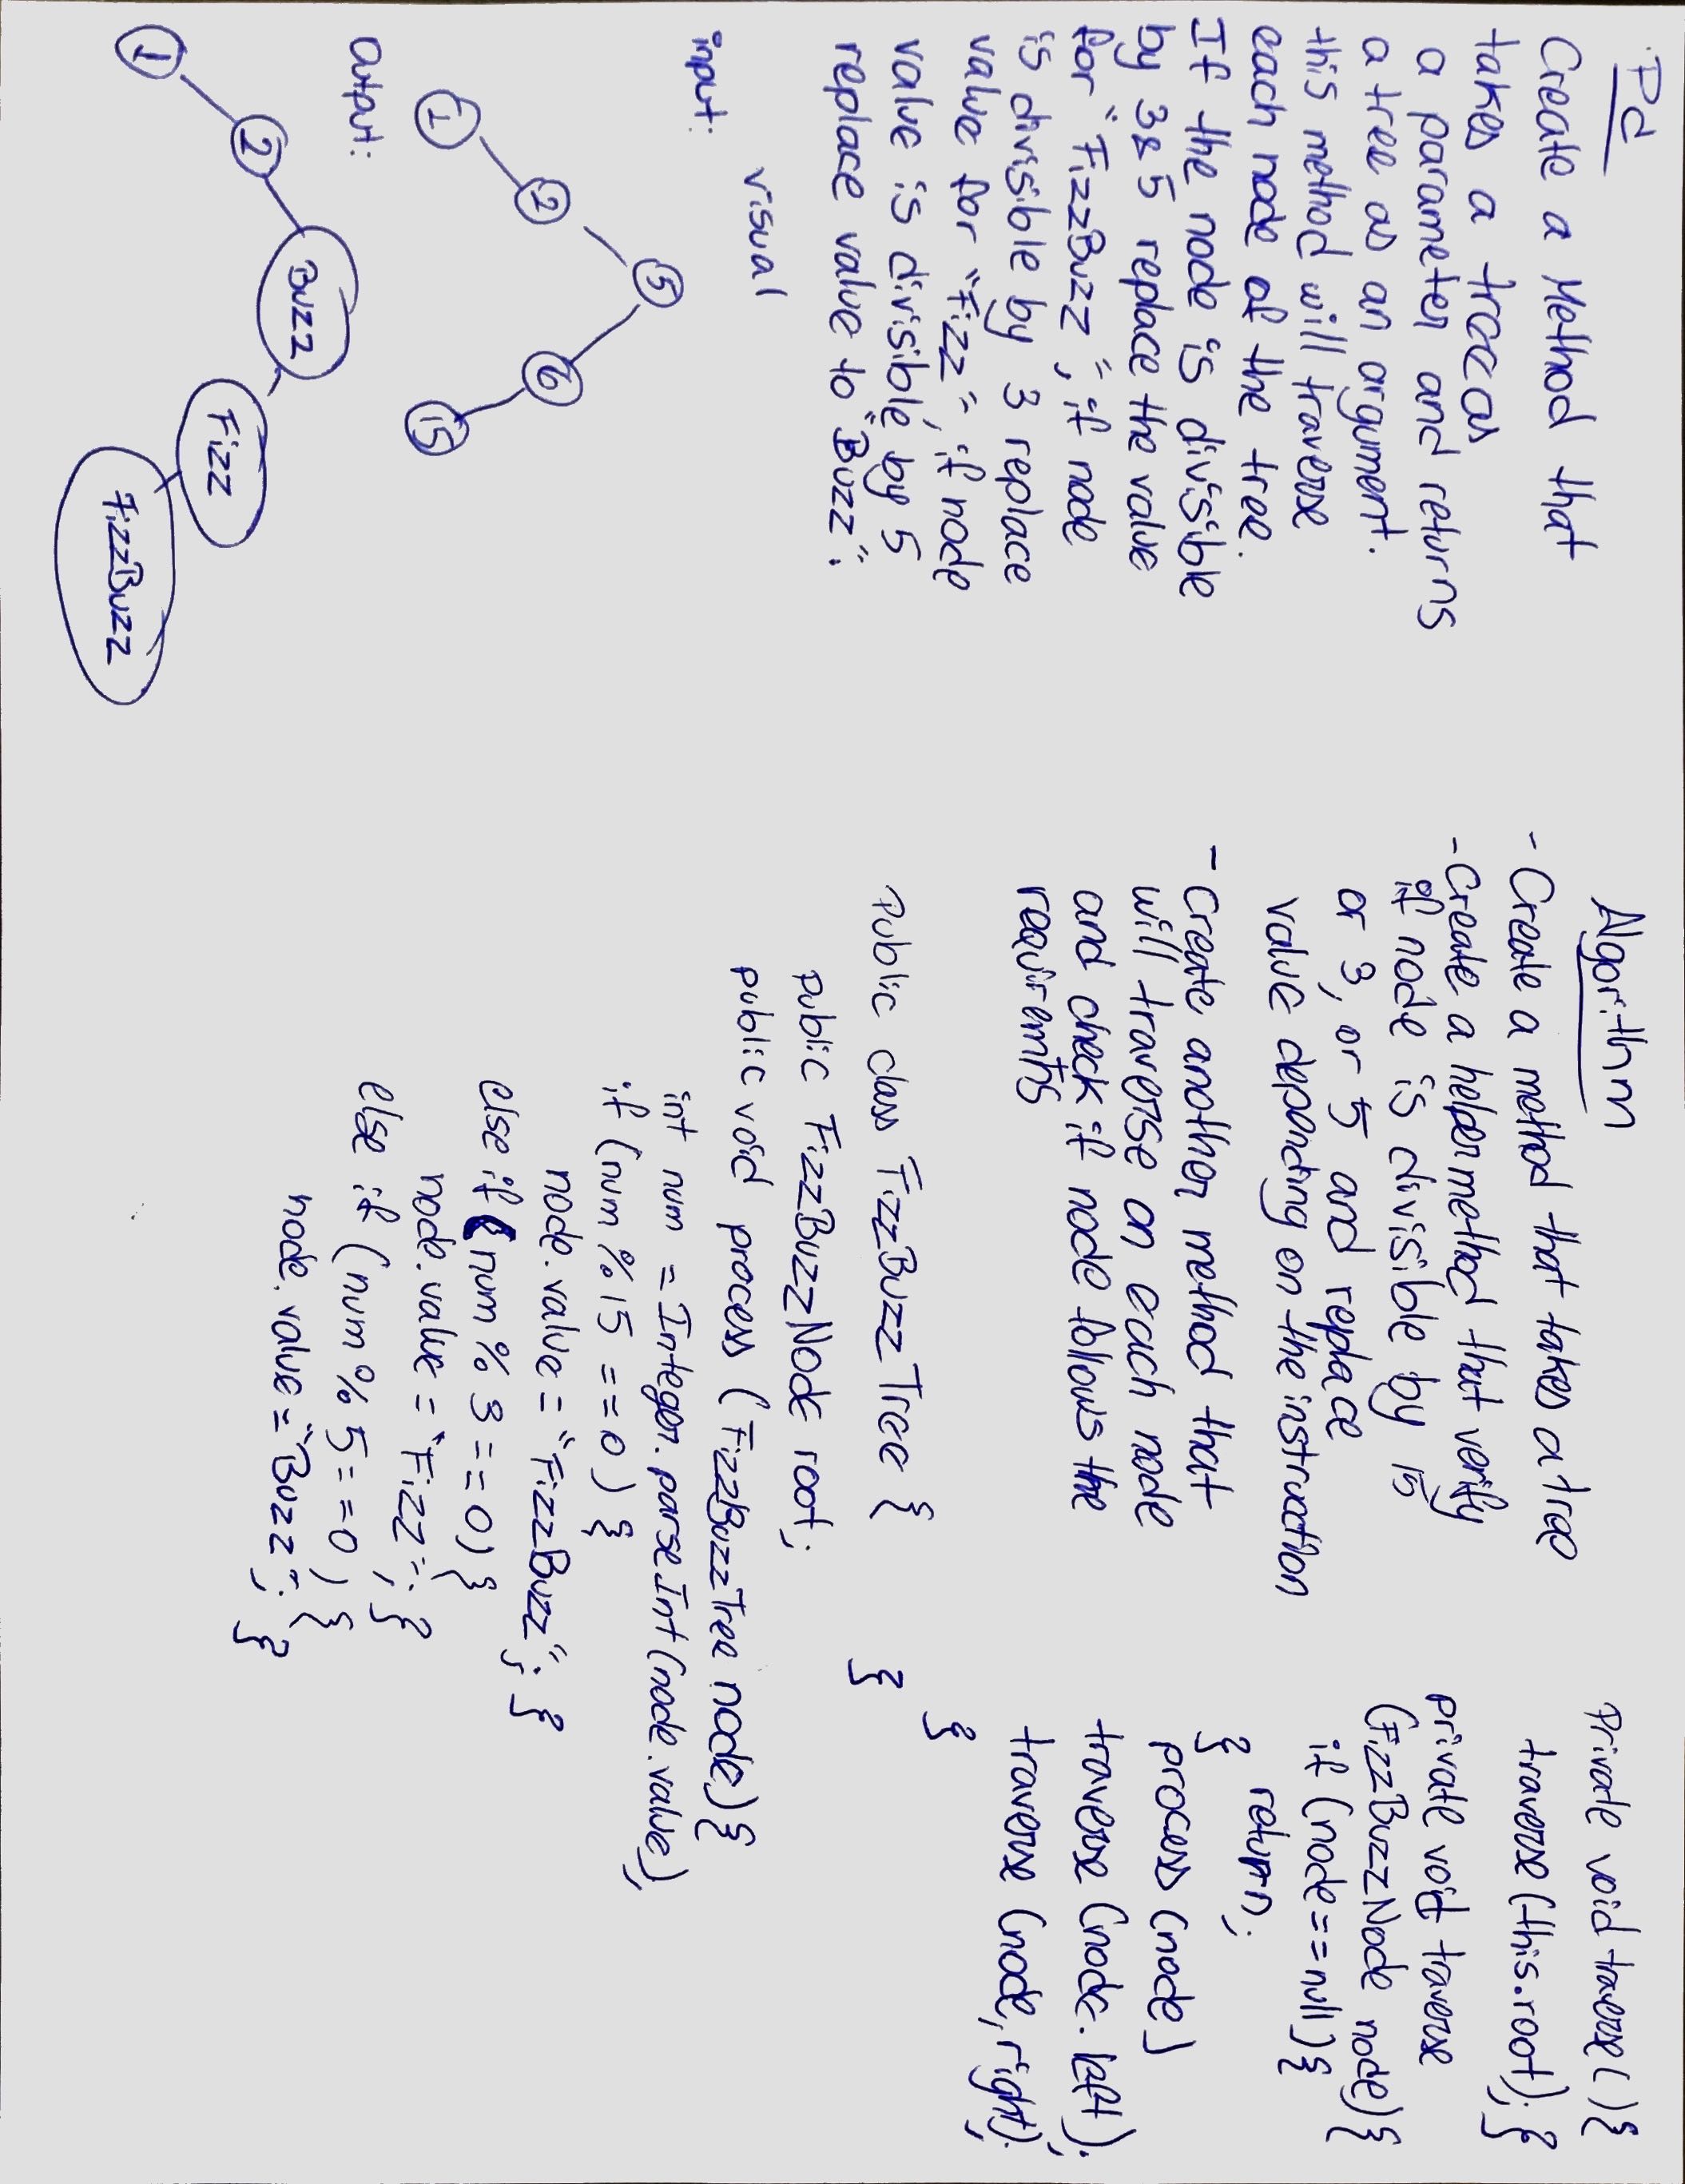 Pd
Create a Method that
takes a tree as
a parameter and returns
a tree as an argument.
this method will traverse
each node of the tree.
If the node is divisible
by 3&5 replace the value
for "FizzBuzz", if node
is divisible by 3 replace
value for "Fizz", if node
value is divisible by 5
replace value to "Buzz".
visual
input:
5
2
6
1
15
output:
Buzz
2
Fizz
1
FizzBuzz
Algorithm
- Create a method that takes a tree
- Create a helper method that verify
if node is divisible by 15
or 3, or 5 and replace
value depending on the instruction
- Create another method that
will traverse on each node
and check if node follows the
requirements
Public class FizzBuzzTree {
public FizzBuzzNode root;
public void process (FizzBuzzTree node){
int num = Integer.parseInt(node.value);
if (num % 15 == 0) {
node.value = "FizzBuzz"; }
else if (num % 3 == 0) {
node.value = "Fizz"; }
else if (num % 5 == 0) {
node.value = "Buzz"; }
}
private void traverse() {
traverse(this.root); }
private void traverse
(FizzBuzzNode node) {
if (node == null) {
return;
}
process (node)
traverse (node.left);
traverse (node,right);
}